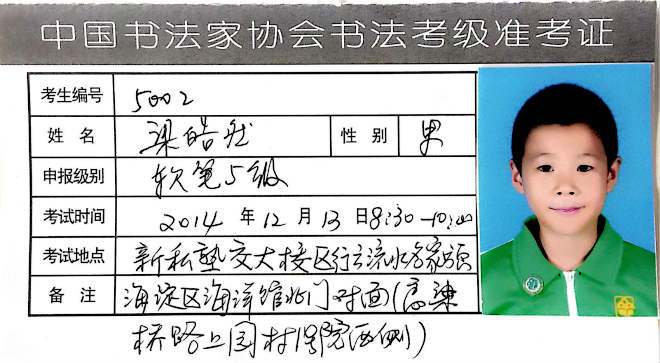 中国书法家协会书法考级准考证
考生编号 5002
姓名 梁皓然 性别 男
申报级别 软笔5级
考试时间 2014年12月13日8:30—10:00
考试地点 新私塾交大校区行云流水名家
备注 海淀区海洋馆北门对面(高
桥路上园村 院西侧)